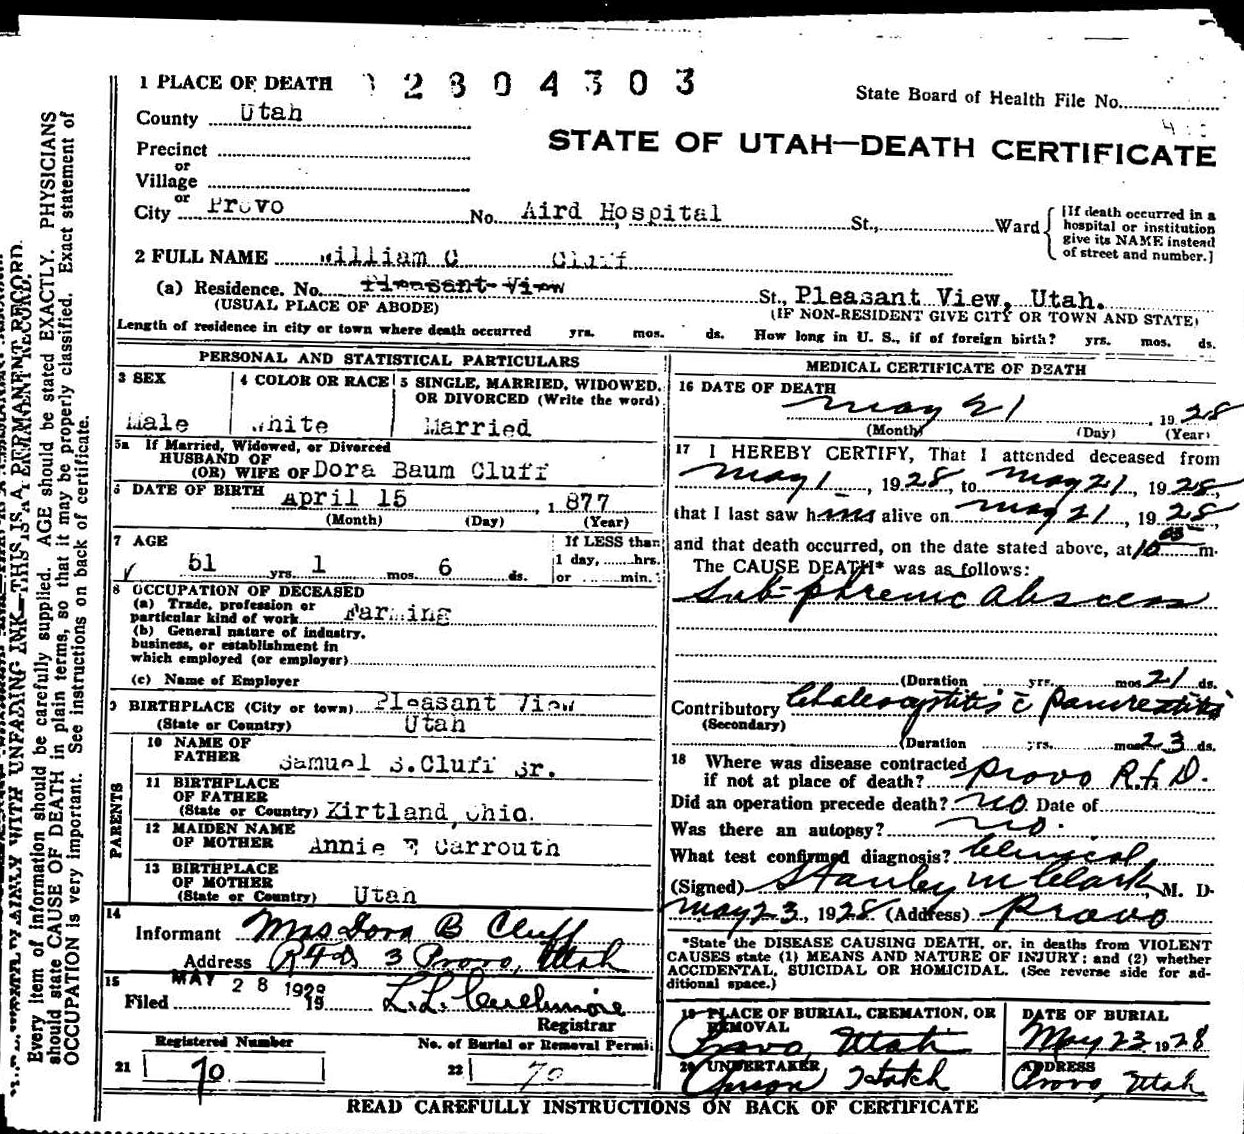 1 PLACE OF DEATH 2804303
State Board of Health File No.
County Utah
STATE OF UTAH—DEATH CERTIFICATE
Precinct
or
Village
or
City Provo No. Aird Hospital St., Ward
[If death occurred in a
hospital or institution
give its NAME instead
of street and number.]
2 FULL NAME William C Cluff
(a) Residence. No. Pleasant View St., Pleasant View, Utah.
(USUAL PLACE OF ABODE) (IF NON-RESIDENT GIVE CITY OR TOWN AND STATE)
Length of residence in city or town where death occurred yrs. mos. ds. How long in U. S., if of foreign birth? yrs. mos. ds.
PERSONAL AND STATISTICAL PARTICULARS
3 SEX
Male
4 COLOR OR RACE
White
5 SINGLE, MARRIED, WIDOWED,
OR DIVORCED (Write the word)
Married
5a If Married, Widowed, or Divorced
HUSBAND OF
(OR) WIFE OF Dora Baum Cluff
6 DATE OF BIRTH April 15, 1877
(Month) (Day) (Year)
7 AGE
51 yrs. 1 mos. 6 ds.
If LESS than
1 day, hrs.
or min.
8 OCCUPATION OF DECEASED
(a) Trade, profession or
particular kind of work Farming
(b) General nature of industry,
business, or establishment in
which employed (or employer)
(c) Name of Employer
9 BIRTHPLACE (City or town) Pleasant View
(State or Country) Utah
PARENTS
10 NAME OF
FATHER Samuel S.Cluff Sr.
11 BIRTHPLACE
OF FATHER
(State or Country) Kirtland, Ohio.
12 MAIDEN NAME
OF MOTHER Annie E Carrouth
13 BIRTHPLACE
OF MOTHER
(State or Country) Utah
14
Informant Mrs Dora B Cluff
Address RFD 3 Provo, Utah
15 MAY 28 1928
Filed 19 L.L.
Registrar
Registered Number No. of Burial or Removal Permit
21 70 22 70
MEDICAL CERTIFICATE OF DEATH
16 DATE OF DEATH
May 21, 1928
(Month) (Day) (Year)
17 I HEREBY CERTIFY, That I attended deceased from
May 1, 1928, to May 21, 1928,
that I last saw him alive on May 21, 1928
and that death occurred, on the date stated above, at 10 m.
The CAUSE DEATH* was as follows:
Sub-phrenic Abscess
(Duration yrs. mos 21 ds.
Contributory Cholecystitis c̄ Pancreatitis
(Secondary)
(Duration yrs. mos 23 ds.
18 Where was disease contracted
if not at place of death? Provo R.F.D.
Did an operation precede death? no Date of
Was there an autopsy? no.
What test confirmed diagnosis? Clinical
(Signed) Stanley M Clark, M. D.
May 23, 1928 (Address) Provo
*State the DISEASE CAUSING DEATH, or, in deaths from VIOLENT
CAUSES state (1) MEANS AND NATURE OF INJURY; and (2) whether
ACCIDENTAL, SUICIDAL OR HOMICIDAL. (See reverse side for ad-
ditional space.)
19 PLACE OF BURIAL, CREMATION, OR
REMOVAL
Provo, Utah
DATE OF BURIAL
May 23 1928
20 UNDERTAKER
Anson Hatch
ADDRESS
Provo, Utah
READ CAREFULLY INSTRUCTIONS ON BACK OF CERTIFICATE
WITH UNFADING INK—THIS IS A PERMANENT RECORD.
Every item of information should be carefully supplied. AGE should be stated EXACTLY. PHYSICIANS
should state CAUSE OF DEATH in plain terms, so that it may be properly classified. Exact statement of
OCCUPATION is very important. See instructions on back of certificate.